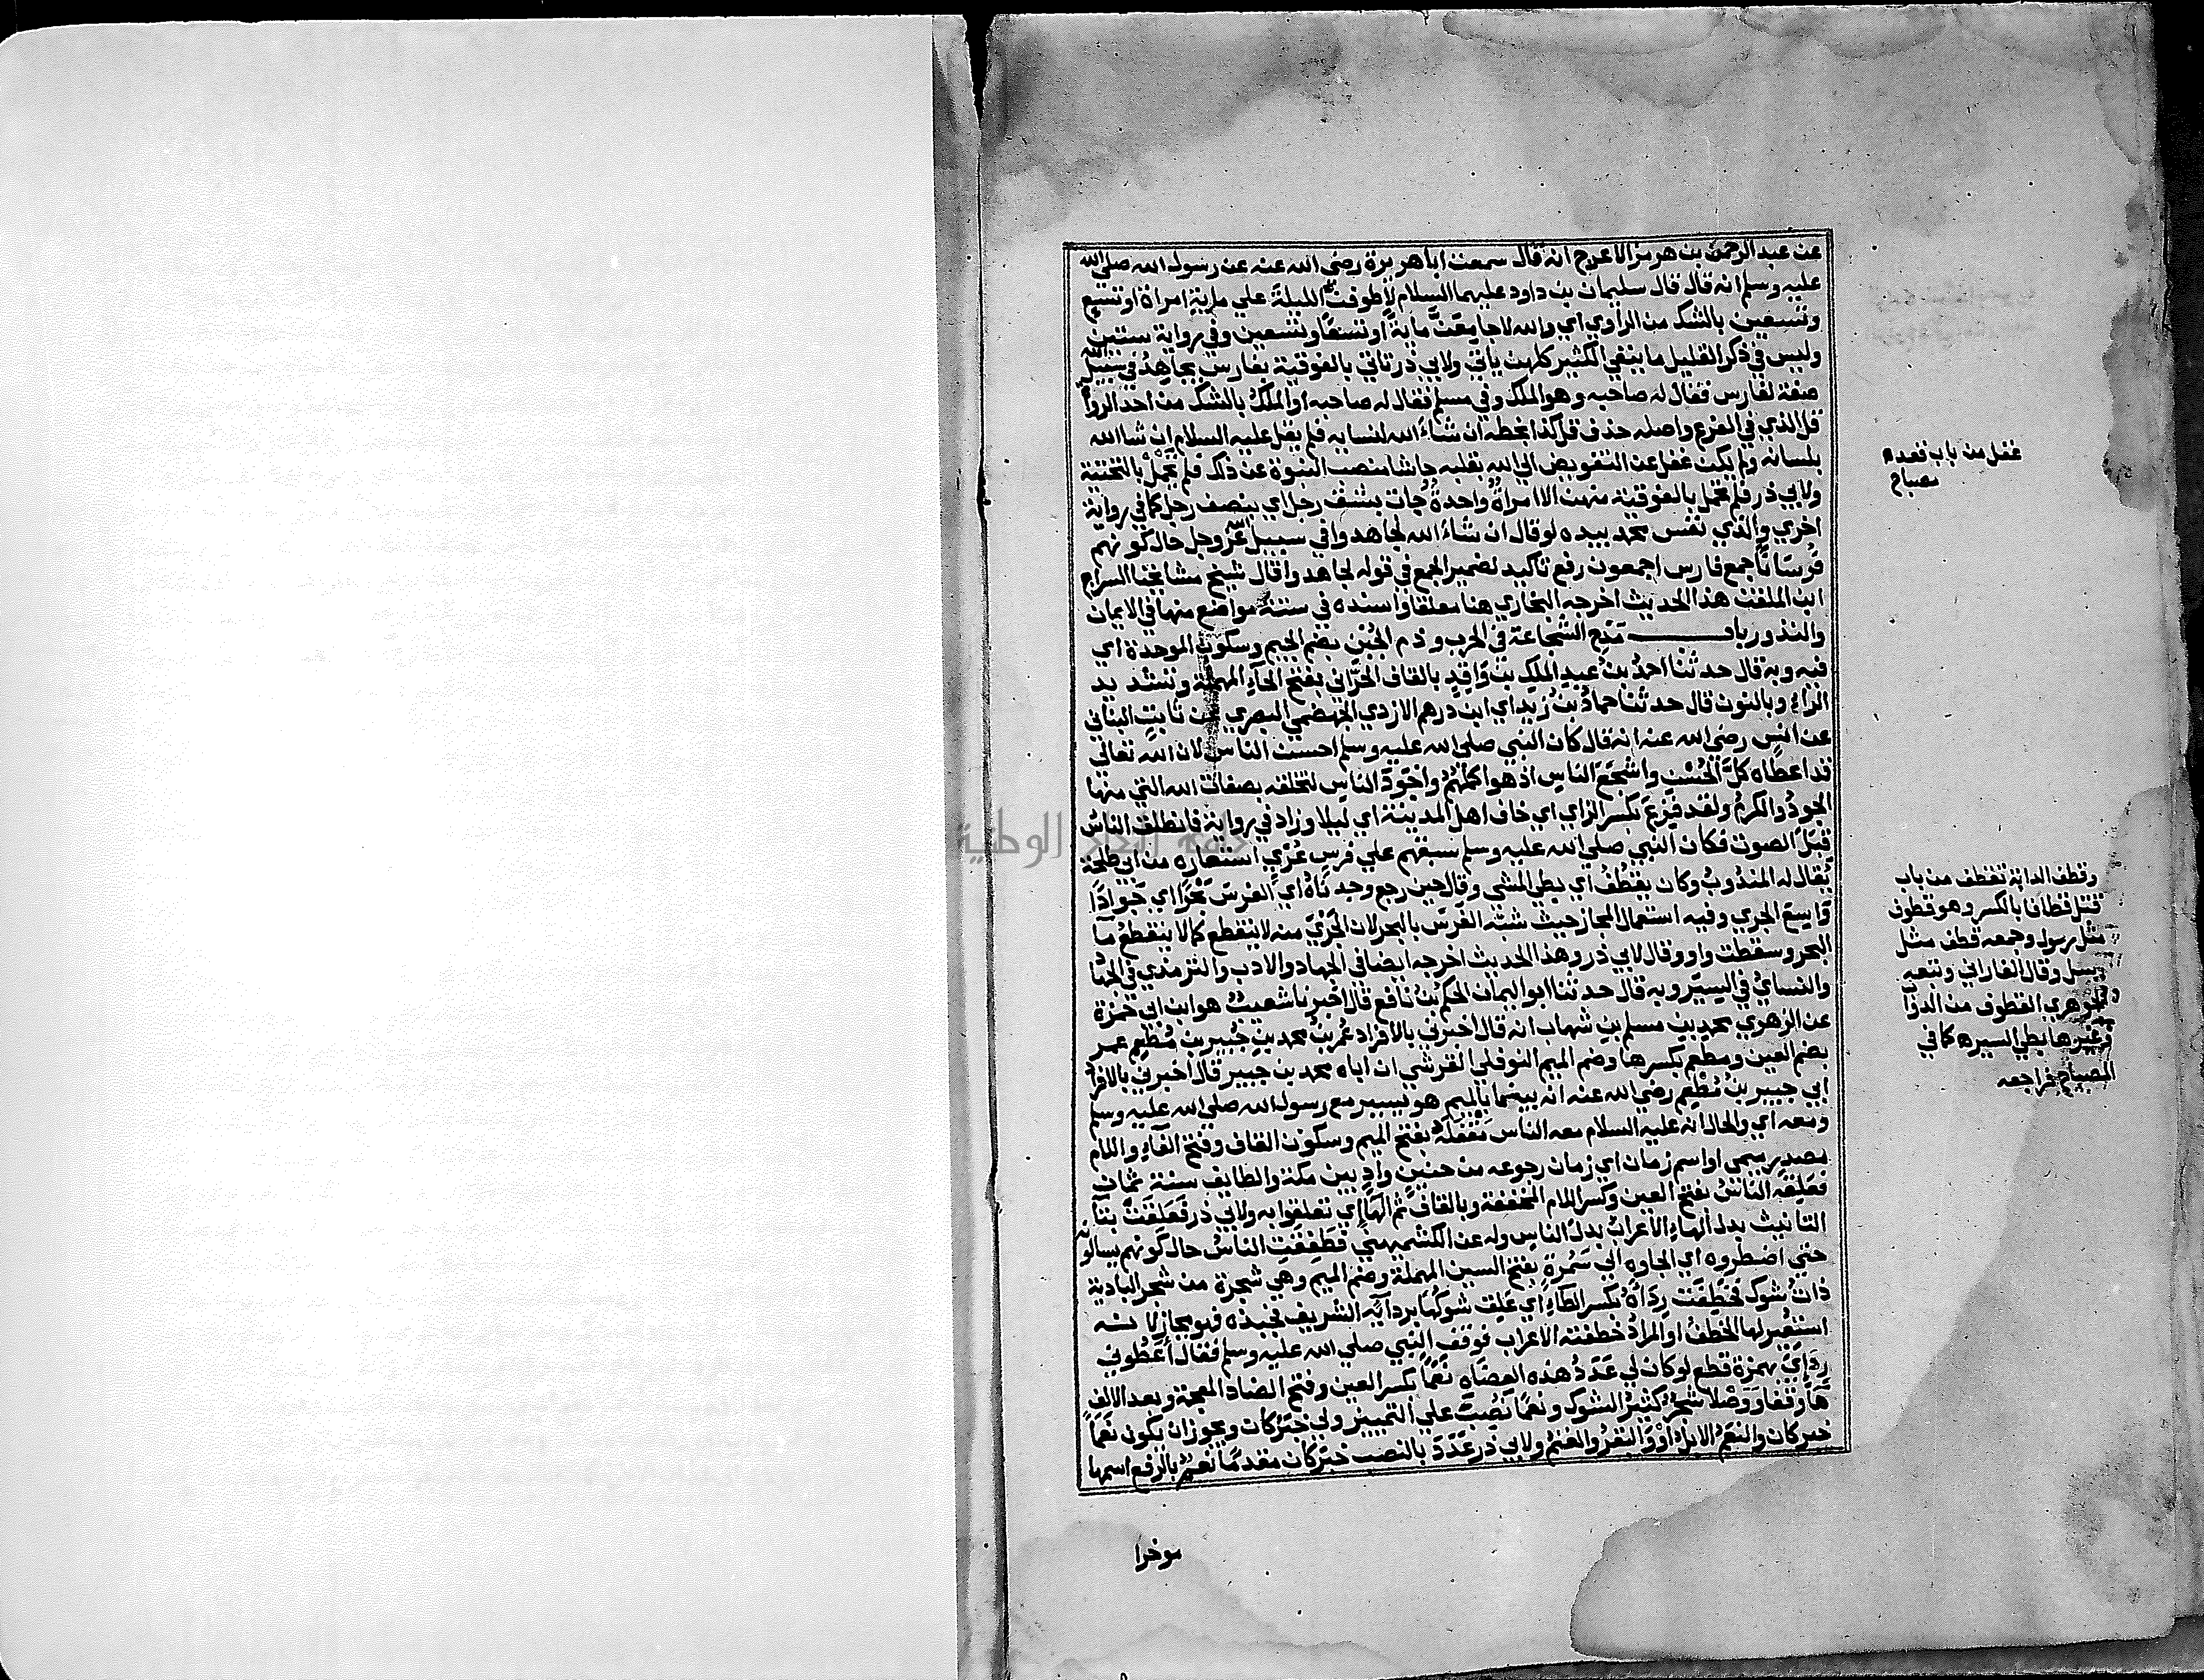 عن عبد الرحمن بن هرمز الاعرج انه قال سمعت ابا هريرة رضي الله عنه عن رسول الله صلي الله
عليه وسلم انه قال قال سليمان بن داود عليهما السلام لاطوفن الليلة علي ماية امراة او تسع
وتسعين بالشك من الراوي اي والله لاجامعن ماية او تسعا وتسعين وفي رواية ستين
وليس في ذكر القليل ما ينفي الكثير كلهن ياتي ولابي ذر تاتي بالفوقية بفارس يجاهد في سبيل الله
صفة لفارس فقال له صاحبه وهو الملك وفي مسلم فقال له صاحبه او الملك بالشك من احد الرواة
قل الذي في الفرع واصله حذف قل كذا بخطه ان شاء الله لنسيانه فلم يقل عليه السلام ان شا الله
بلسانه ولم يكن غفل عن التفويض الي الله بقلبه حاشا منصب النبوة عن ذلك فلم يحمل بالتحتية
ولابي ذر فلم تحمل بالفوقية منهن الا امراة واحدة جات بشق رجل اي بنصف رجل كما في رواية
اخري والذي نفس محمد بيده لو قال ان شاء الله لجاهدوا في سبيل الله عز وجل حال كونهم
فرسانا جمع فارس اجمعون رفع تاكيد لضمير الجمع في قوله لجاهدوا قال شيخ مشايخنا السراج
ابن الملقن هذا الحديث اخرجه البخاري هنا معلقا واسنده في ستة مواضع منها في الايمان
والنذور باب مدح الشجاعة في الحرب وذم الجبن بضم الجيم وسكون الموحدة اي
فيه وبه قال حدثنا احمد بن عبد الملك بن واقد بالقاف الحراني بفتح الحاء المهملة وتشديد
الراء وبالنون قال حدثنا حماد بن زيد اي ابن درهم الازدي الجهضمي البصري عن ثابت البناني
عن انس رضي الله عنه انه قال كان النبي صلي الله عليه وسلم احسن الناس لان الله تعالي
قد اعطاه كل الحسن واشجع الناس اذ هو اكملهم واجود الناس لتخلقه بصفات الله التي منها
الجود والكرم ولقد فزع بكسر الزاي اي خاف اهل المدينة اي ليلا وزاد في رواية فانطلق الناس
قبل الصوت فكان النبي صلي الله عليه وسلم سبقهم علي فرس عري استعاره من ابي طلحة
يقال له المندوب وكان يقطف اي بطي المشي وقال حين رجع وجدناه اي الفرس بحرا اي جوادا
واسع الجري وفيه استعمال المجاز حيث شبه الفرس بالبحر لان الجري منه لا ينقطع كما لا ينقطع ما
البحر وسقطت واو وقال لابي ذر وهذا الحديث اخرجه ايضا في الجهاد والادب والترمذي في الجها
والنسائي في السير وبه قال حدثنا ابو اليمان الحكم بن نافع قال اخبرنا شعيب هو ابن ابي حمزة
عن الزهري محمد بن مسلم بن شهاب انه قال اخبرني بالافراد عمر بن محمد بن جبير بن مطعم عمر
بضم العين ومطعم بكسرها وضم الميم النوفلي القرشي ان اباه محمد بن جبير قال اخبرني بالافراد
ابي جبير بن مطعم رضي الله عنه انه بينما بالميم هو يسير مع رسول الله صلي الله عليه وسلم
ومعه اي والحال انه عليه السلام معه الناس مقفله بفتح الميم وسكون القاف وفتح الفاء واللام
مصدر ميمي او اسم زمان اي زمان رجوعه من حنين واد بين مكة والطايف سنة ثمان
فعلقه الناس بفتح العين وكسر اللام المخففة وبالقاف ثم الهاء اي تعلقوا به ولابي ذر فعلقت بتا
التانيث بدل الهاء الاعراب بدل الناس وله عن الكشميهني فطفقت الناس حال كونهم يسالونه
حتي اضطروه اي الجاوه الي سمرة بفتح السين المهملة وضم الميم وهي شجرة من شجر البادية
ذات شوك فخطفت رداه بكسر الطاء اي علق شوكها بردايه الشريف فجبذه فهو مجاز لانه
استعير لها الخطف او المراد خطفته الاعراب فوقف النبي صلي الله عليه وسلم فقال اعطوني
رداي بهمزة قطع لو كان لي عدد هذه العضاه نعما بكسر العين وفتح الضاد المعجمة وبعد الالف
هاء وقفا ووصلا شجر كثير الشوك ونعما نصب علي التمييز ولي خبر كان ويجوز ان يكون نعما
خبر كان والنعم الابل او والبقر والغنم ولابي ذر عدد بالنصب خبر كان مقدما نعم بالرفع اسمها
موخرا
غفل من باب قعد ه
مصباح
وقطف الدابة تقطف من باب
قتل قطافا بالكسر وهو قطوف
مثل رسول وجمعه قطف مثل
رسل وقال الفارابي وتبعه
الجوهري القطوف من الدواب
وغيرها بطي السير ه كما في
المصباح فراجعه
جامعة النجاح الوطنية